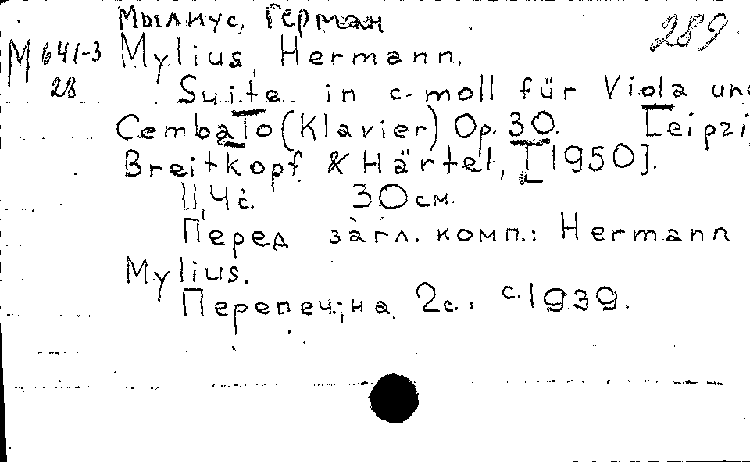 Мылиус, Герман 289.
М 641-3 Mylius, Hermann.
28 Suite in c-moll für Viola und
Cembalo (Klavier) Op. 30. Leipzi
Breitkopf & Härtel, [1950].
11, 4 с. 30 см.
Перед загл. комп.: Hermann
Mylius.
Перепеч.; на 2 с.: с. 1939.